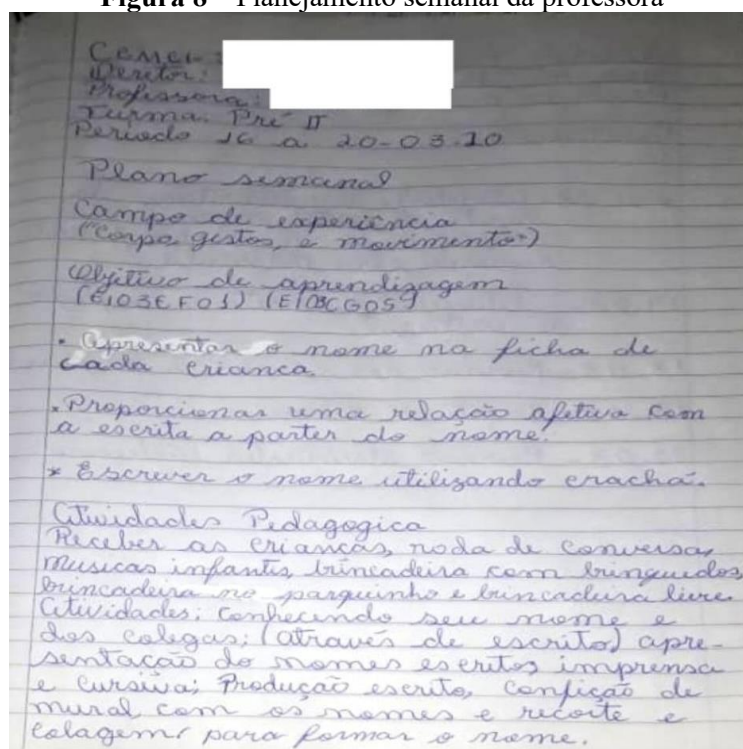 Figura 8 – Planejamento semanal da professora
Cemei:
Diretor:
Professora:
Turma: Pré II
Periodo 16 a 20-03.20
Plano semanal
Campo de experiência
("Corpo, gestos, e movimento")
Objetivo de aprendizagem
(EI03EF01) (EI03CG05)
• Apresentar o nome na ficha de
cada criança.
• Proporcionar uma relação afetiva com
a escrita a parter do nome.
* Escrever o nome utilizando crachá.
Atividades Pedagogica
Receber as crianças, roda de conversa,
musicas infantis, brincadeira com brinquedos,
brincadeira no parquinho e brincadeira livre.
Atividades: conhecendo seu nome e
dos colegas; (através de escrito) apre-
sentação do nomes escritos imprensa
e cursiva; Produção escrito, confição de
mural com os nomes e recorte e
colagem para formar o nome.